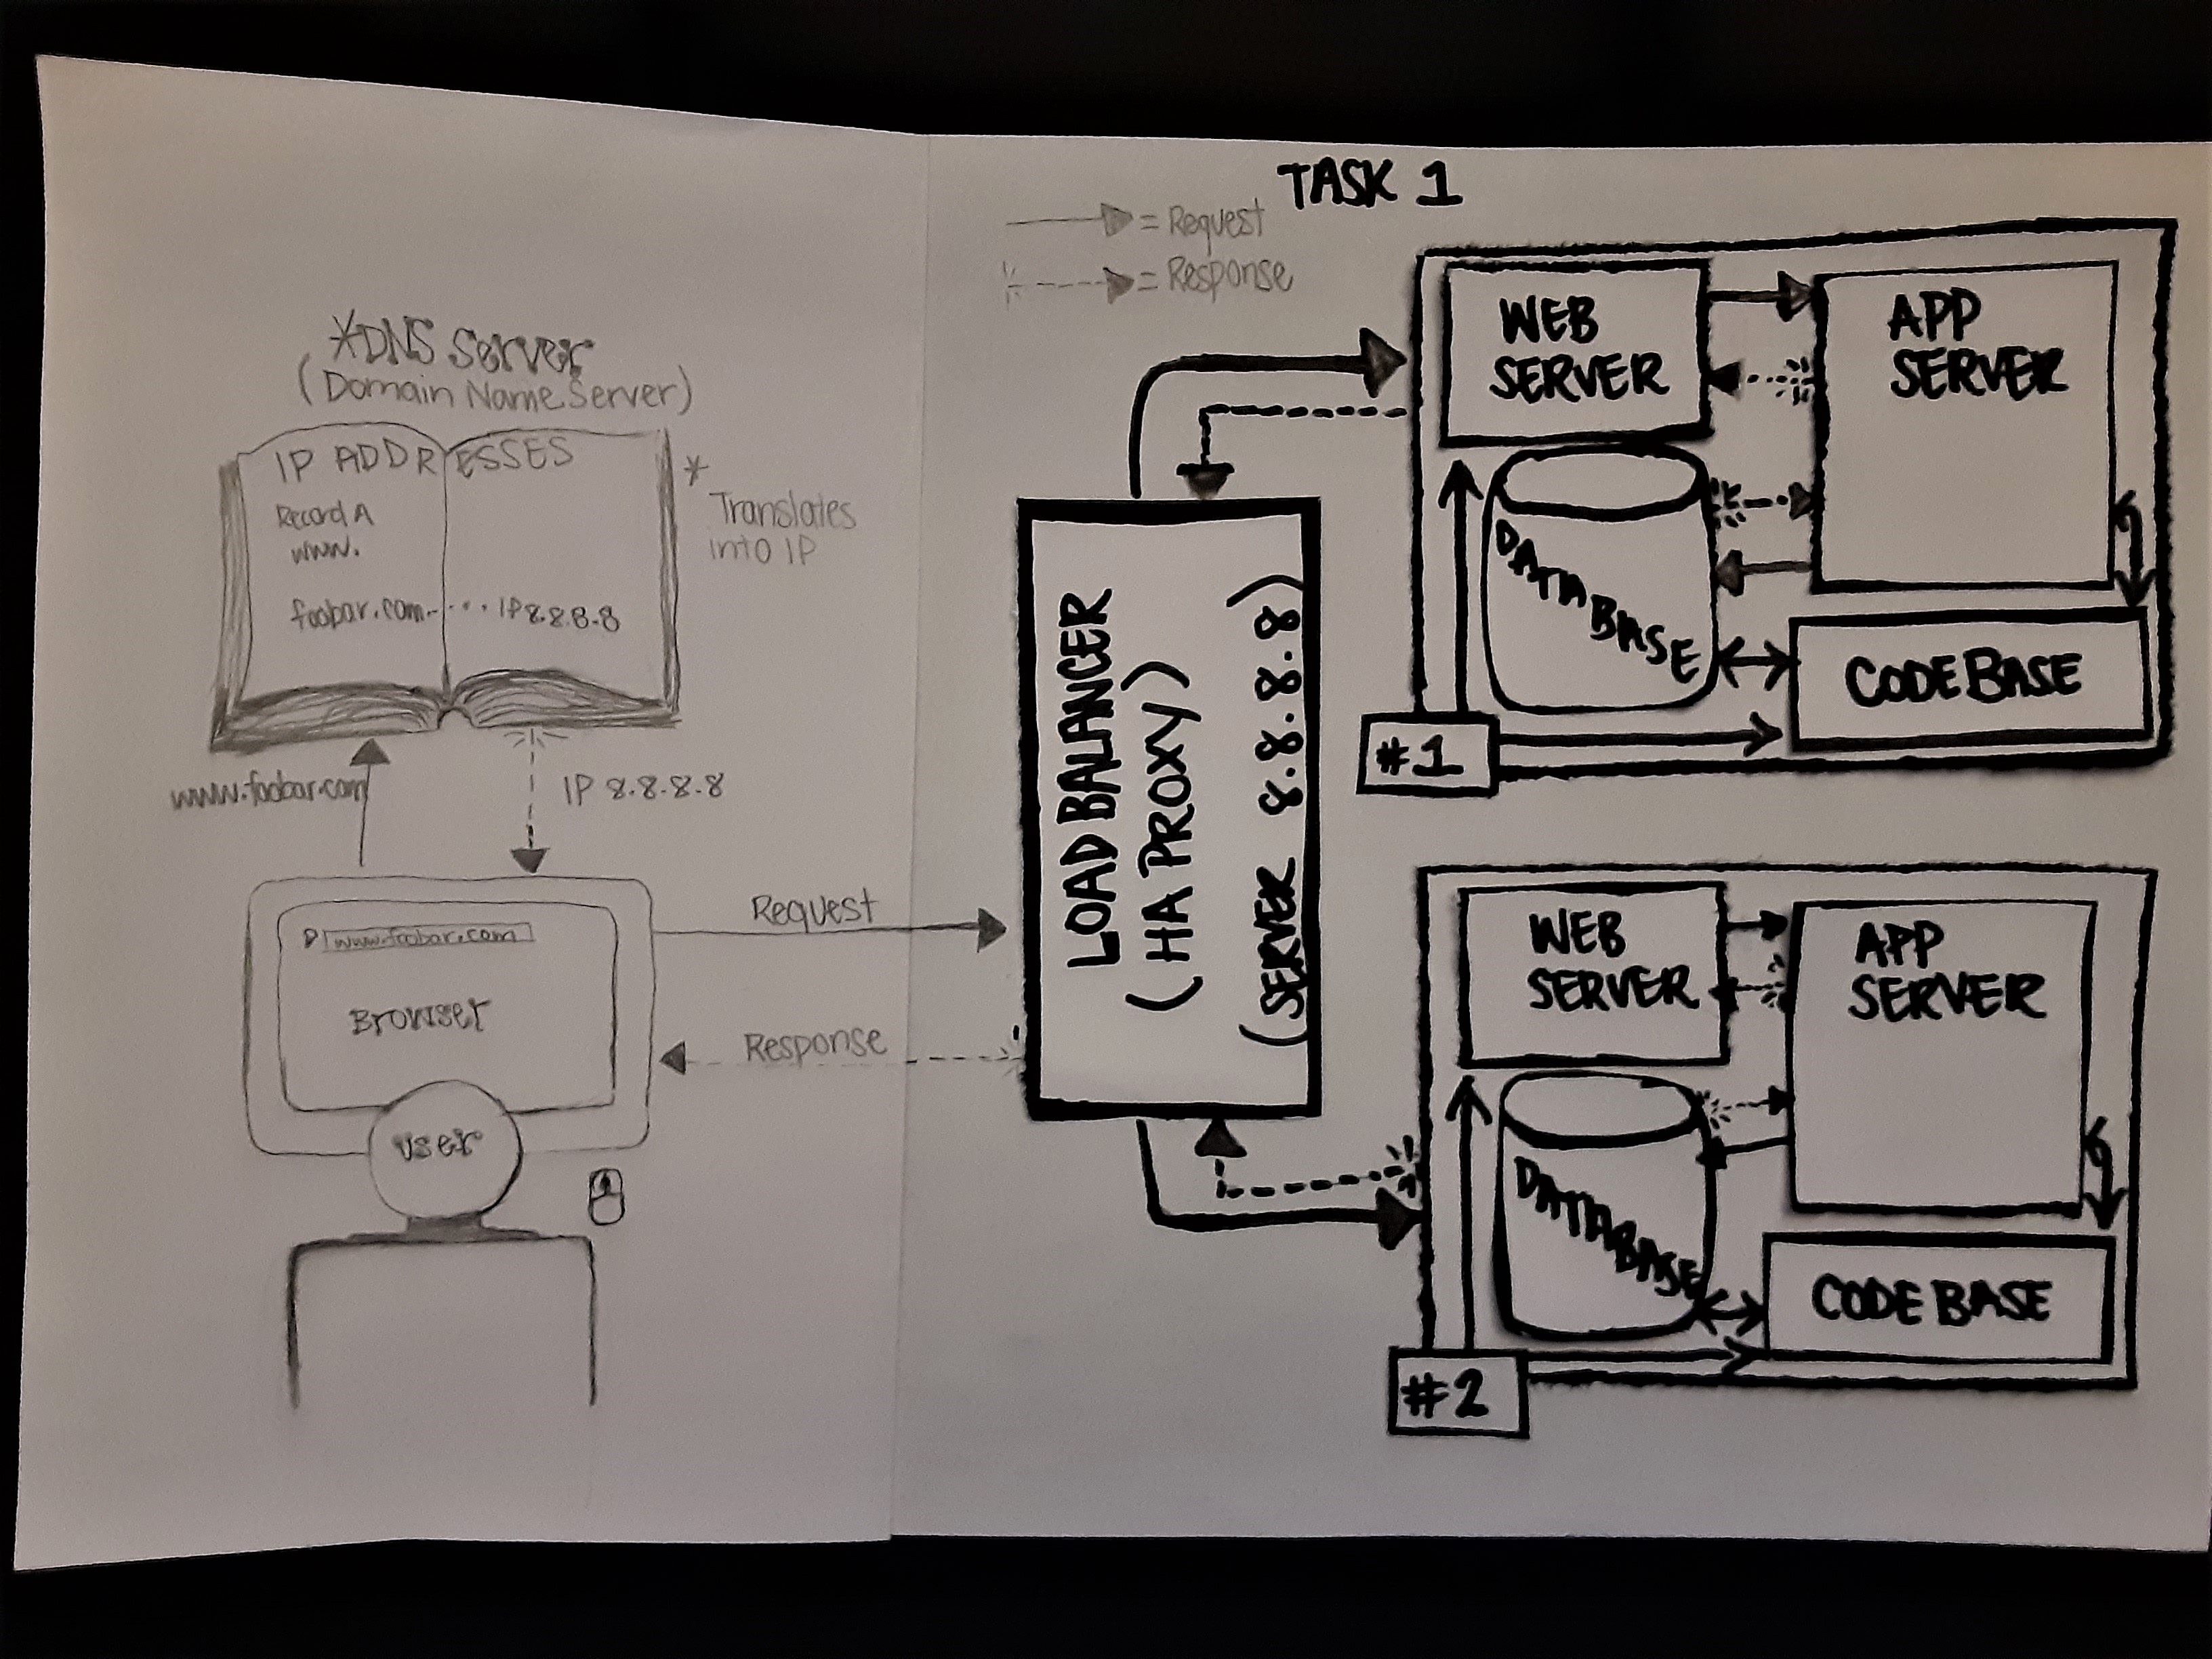 TASK 1
= Request
= Response
*DNS Server
(Domain Name Server)
IP ADDRESSES
Record A
www.
foobar.com..... IP 8.8.8.8
*
Translates
into IP
www.foobar.com
IP 8.8.8.8
www.foobar.com
Browser
User
Request
Response
LOAD BALANCER
(HA PROXY)
(SERVER 8.8.8.8)
WEB
SERVER
APP
SERVER
DATABASE
CODE BASE
#1
WEB
SERVER
APP
SERVER
DATABASE
CODE BASE
#2